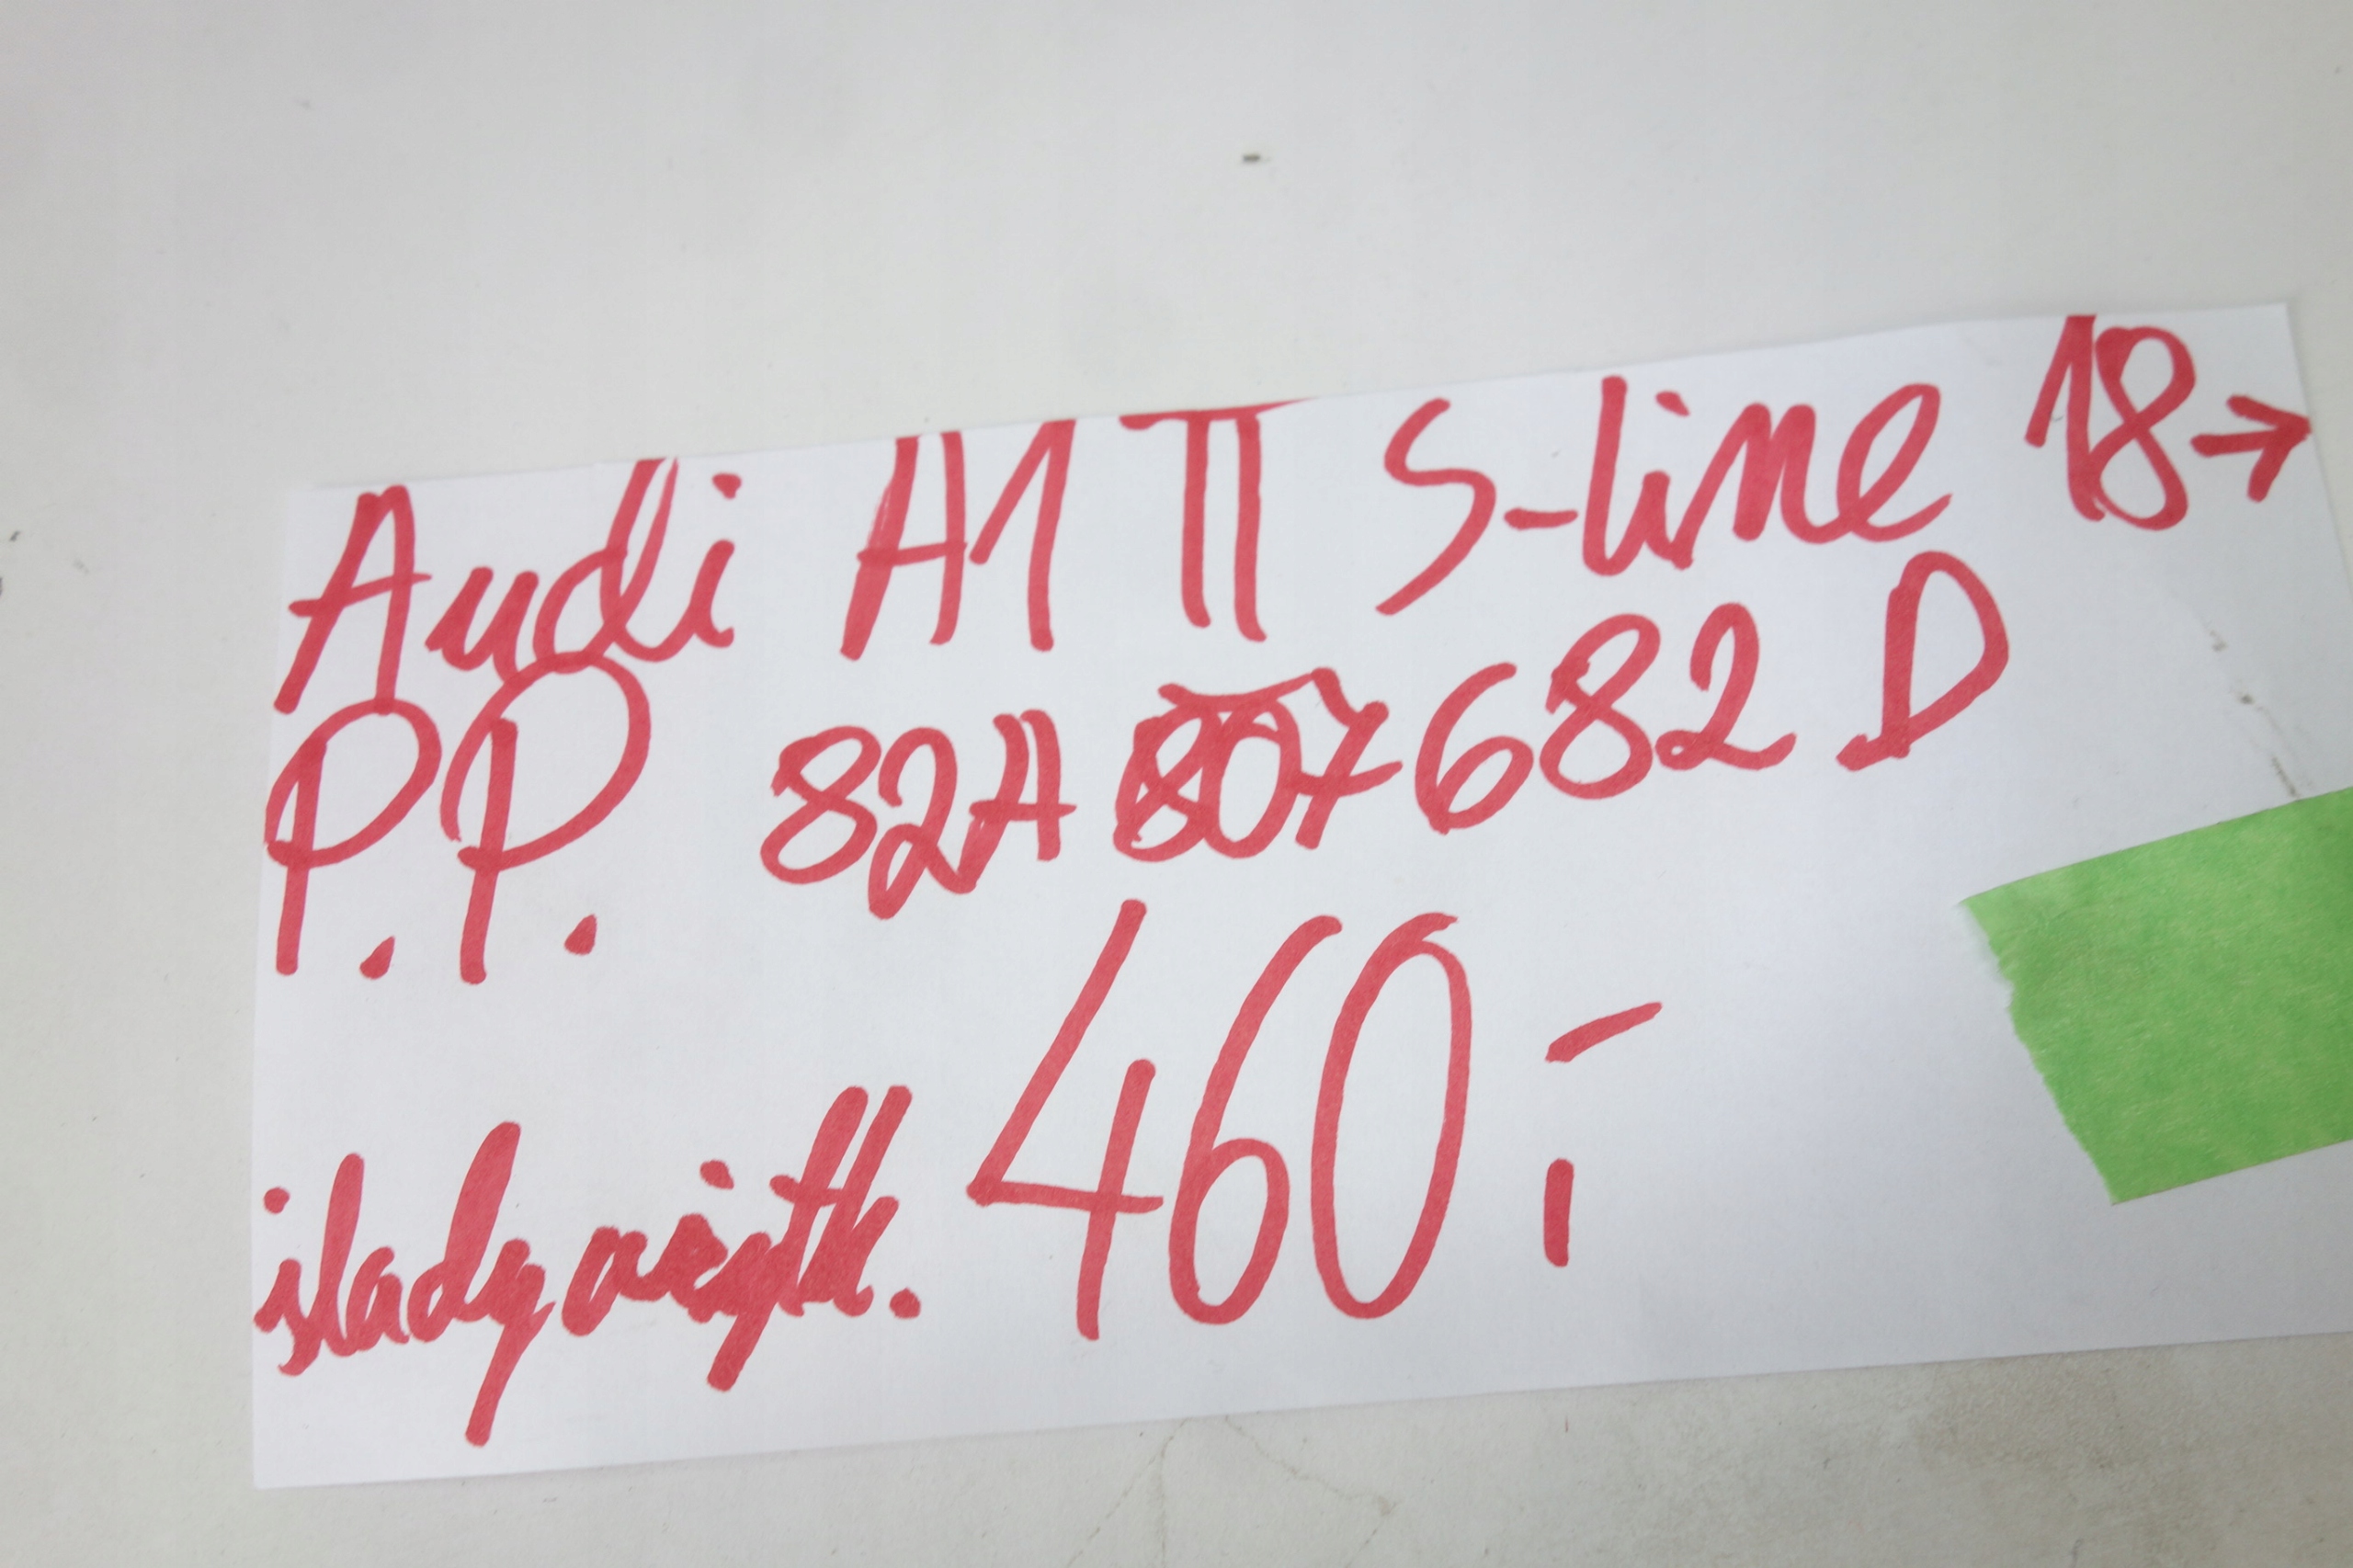 Audi A1 II S-line 18→
P.P. 82A 807 682 D
ślady użytk. 460,-